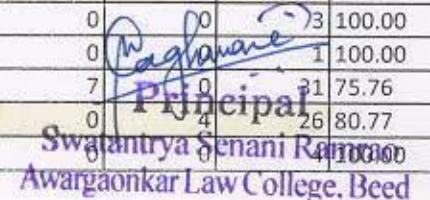 0 0 3 100.00
0 0 1 100.00
7 0 31 75.76
0 4 26 80.77
0 0 4 100.00
Principal
Swatantrya Senani Ramrao
Awargaonkar Law College, Beed